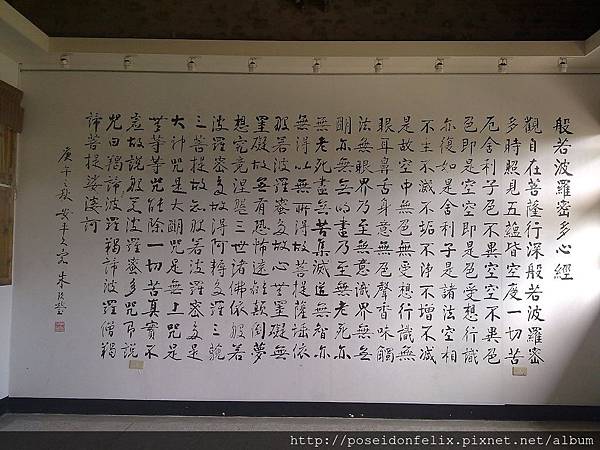 般若波羅密多心經
觀自在菩薩行深般若波羅密
多時照見五蘊皆空度一切苦
厄舍利子色不異空空不異色
色即是空空即是色受想行識
亦復如是舍利子是諸法空相
不生不滅不垢不淨不增不減
是故空中無色無受想行識無
眼耳鼻舌身意無色聲香味觸
法無眼界乃至無意識界無無
明亦無無明盡乃至無老死亦
無老死盡無苦集滅道無智亦
無得以無所得故菩提薩埵依
般若波羅密多故心無罣礙無
罣礙故無有恐怖遠離顛倒夢
想究竟涅槃三世諸佛依般若
波羅密多故得阿耨多羅三藐
三菩提故知般若波羅密多是
大神咒是大明咒是無上咒是
無等等咒能除一切苦真實不
虛故說般若波羅密多咒即說
咒曰羯諦波羅羯諦波羅僧羯
諦菩提娑婆訶
庚午之秋安平久客朱玖瑩
http://poseidonfelix.pixnet.net/album